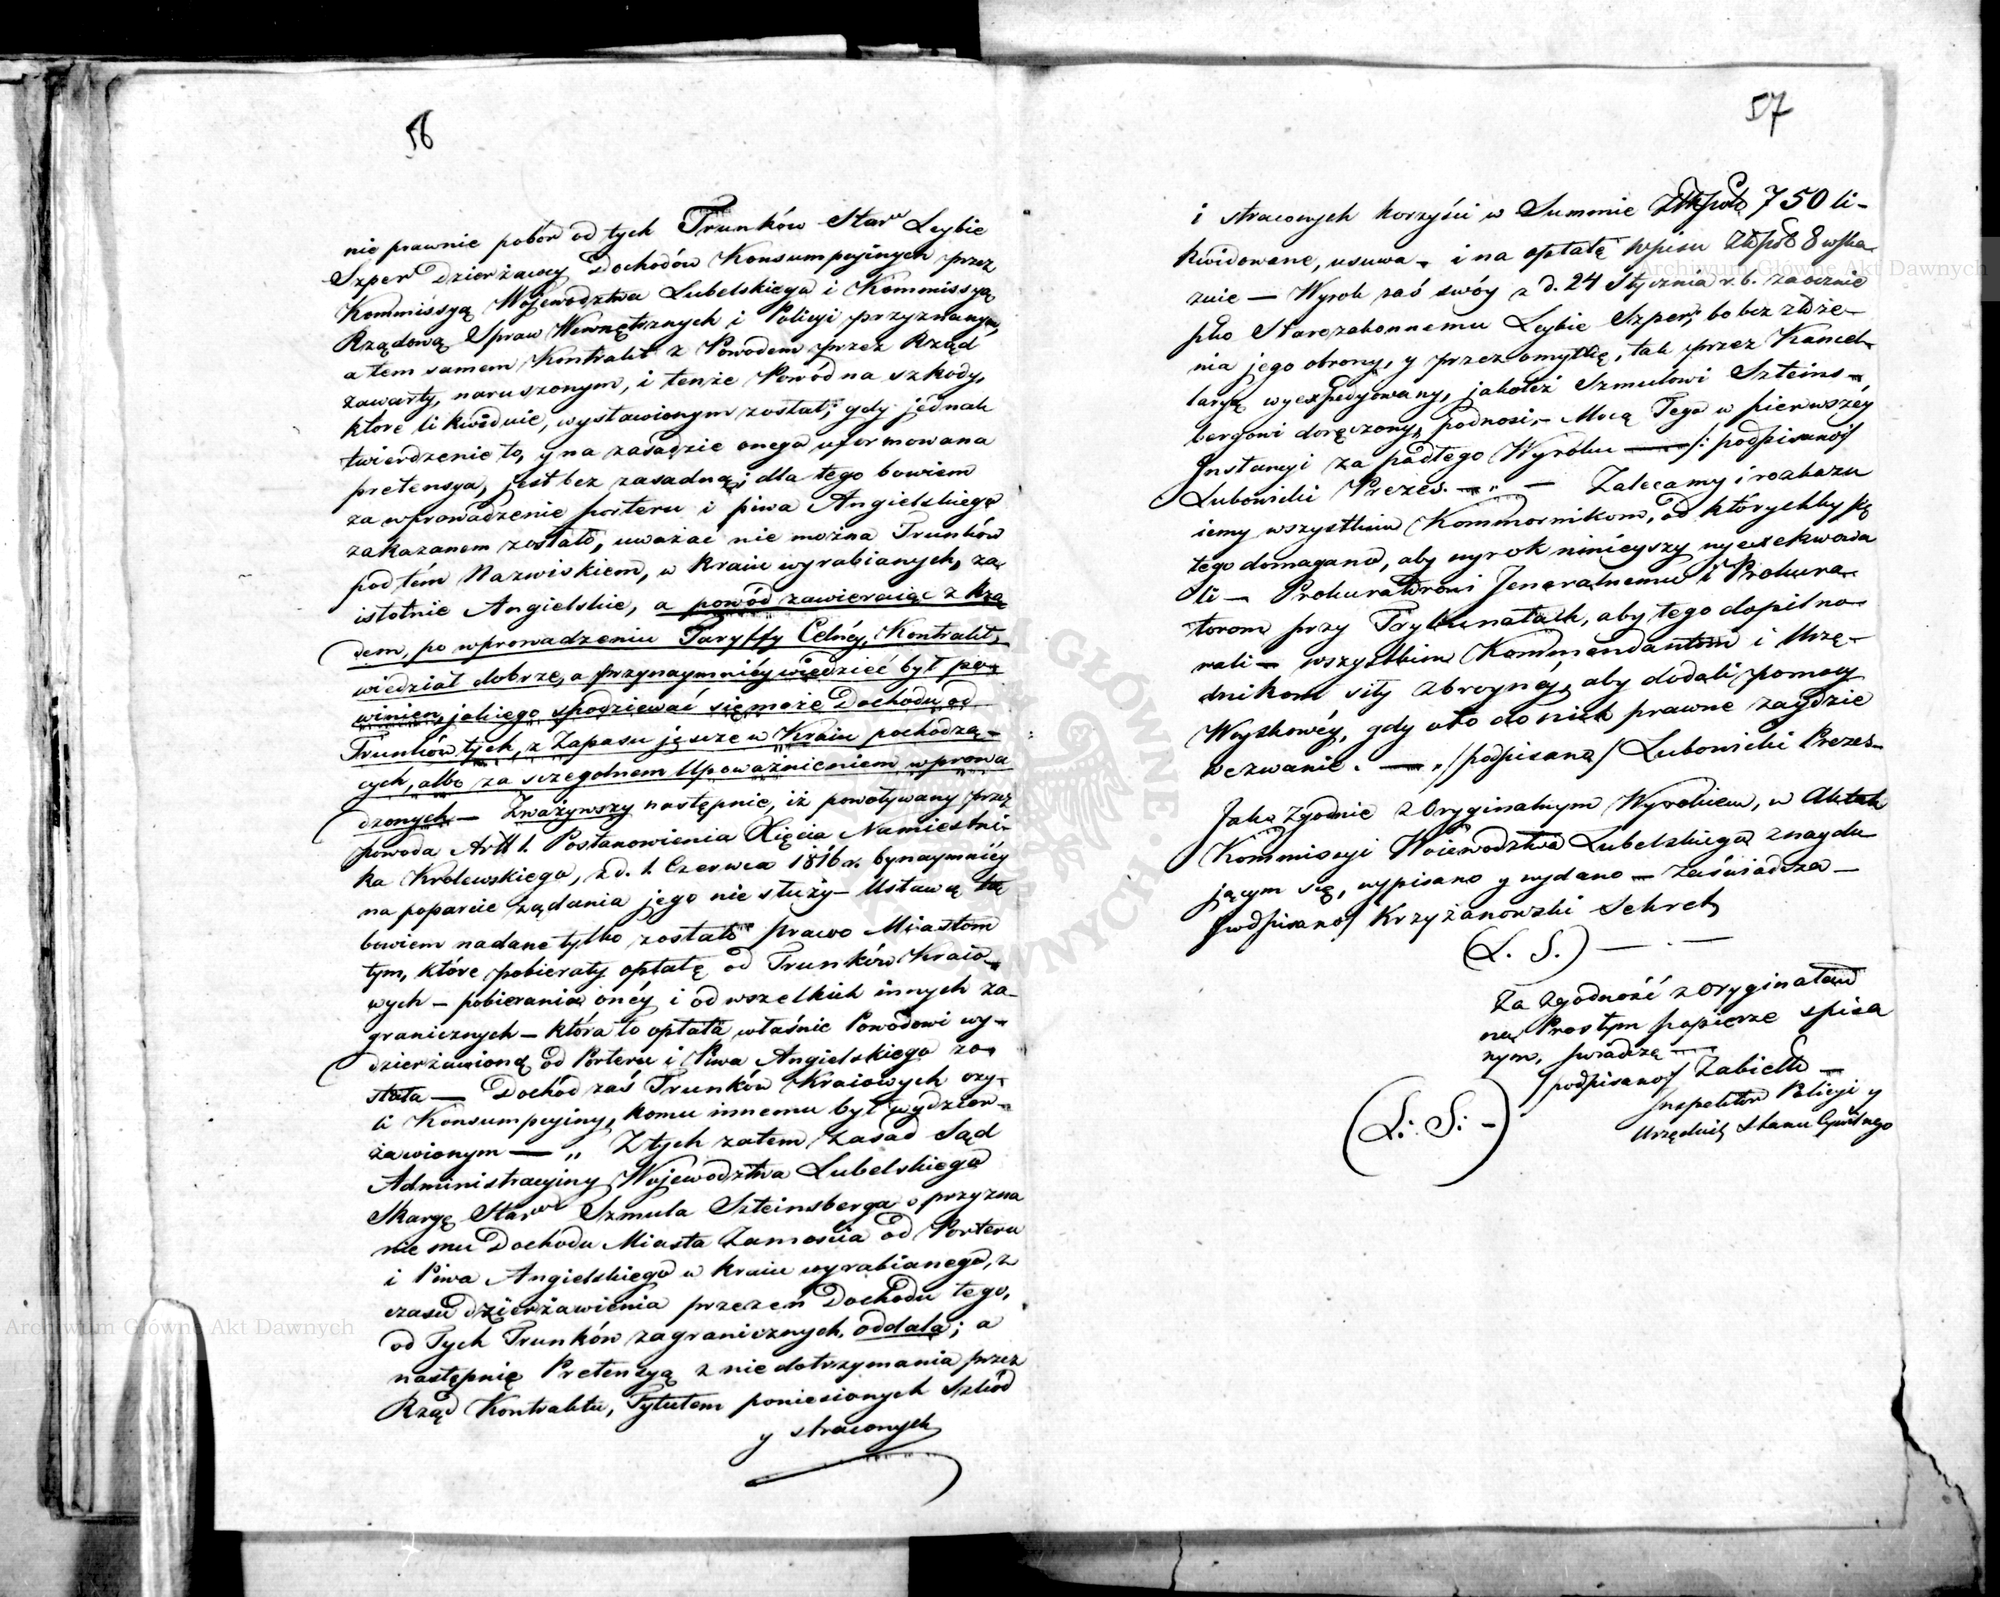 56
nie prawnie pobór od tych Trunków Star Leybie
Szper Dzierżawcy Dochodów Konsumpcyinych przez
Kommissyą Województwa Lubelskiego i Kommissyą
Rządową Spraw Wewnętrznych i Policyi przyznanym,
a tem samem Kontrakt z Powodem przez Rząd
zawarty, naruszonym, i tenże Powód na szkody,
które likwiduie, wystawionym został; gdy jednak
twierdzenie to, y na zasadzie onego uformowana
pretensya, jest bez zasadną; dla tego bowiem
za wprowadzenie porteru i piwa Angielskiego
zakazanem zostało, uważać nie można Trunków
pod tém Nazwiskiem, w kraiu wyrabianych, za
istotnie Angielskie, a powód zawieraiąc z Rzą
dem, po wprowadzeniu Taryffy Celnéy, Kontrakt,
wiedział dobrze, a przynaymniéy wiedzieć był po-
winien, jakiego spodziewać się może Dochodu od
Trunków tych, z Zapasu jeszcze w Kraiu pochodzą-
cych, albo za szczegolnem Upoważnieniem wprowa
dzonych — Zważywszy następnie, iż powoływany przez
powoda Artł 1. Postanowienia Xięcia Namiestni-
ka Królewskiego, z d. 1 Czerwca 1816 r. bynaymniéy
na poparcie żądania jego nie służy — Ustawą tą
bowiem nadane tylko zostało prawo Miastom
tym, które pobierały opłatę od Trunków Kraio-
wych — pobierania onéy i od wszelkich innych za-
granicznych — która to opłata właśnie Powodowi wy-
dzierżawioną od Porteru i Piwa Angielskiego zo-
stała — Dochód zaś Trunków Kraiowych czy-
li Konsumpcyiny, komu innemu był wydzier-
żawionym — „ Z tych zatem Zasad Sąd
Administracyiny Województwa Lubelskiego
Skargę Star Szmula Szteinsberga o przyzna
nie mu Dochodu Miasta Zamościa od Porteru
i Piwa Angielskiego w kraiu wyrabianego, z
czasu dzierżawienia przezeń Dochodu tego,
od Tych Trunków zagranicznych, oddala; a
następnie Pretensyą z niedotrzymania przez
Rząd Kontraktu, Tytułem poniesionych Szkód
y straconych
57
i straconych korzyści w Summie Złłpol 750 li-
kwidowane, usuwa — i na opłatę wpisu Złłpol 8 wska
zuie — Wyrok zaś swóy z d. 24 Stycznia r. b. zaocznie
pko Starozakonnemu Leybie Szper, bo bez zboże-
nia jego obrony, y przez omyłkę, tak przez Kancel-
laryą wyexpedyowany, jakoteż Szmulowi Szteins-
bergowi doręczony, podnosi, — Mocą Tego w pierwszéy
Instancyi zapadłego Wyroku — /: podpisano/
Lubowidzki Prezes. — „ — Zalecamy i rozkazu
iemy wszystkim Kommornikom, od którychby się
tego domagano, aby wyrok ninieyszy wyexekwowa
li — Prokuratorowi Jeneralnemu i Prokura-
torom przy Trybunałach, aby tego dopilno-
wali — wszystkim Kommendantom i Urzę-
dnikom siły zbroyney, aby dodali pomocy
Woyskowéy, gdy oto do nich prawne zaydzie
wezwanie. — „ /podpisano/ Lubowidzki Prezes —
Jako Zgodnie z Oryginalnym Wyrokiem, w Aktach
Kommissyi Woiewodztwa Lubelskiego znaydu
jącym się, wypisano y wydano — Zaświadcza —
/podpisano/ Krzyżanowski Sekret
(L. S.) — . —
Za Zgodność z Oryginałem
na Prostym papierze spisa
nym, świadczę —
/podpisano/ Zabiełło —
Inspektor Policyi y
Urzędnik Stanu Cywilnego
(L: S: —)
Archiwum Główne Akt Dawnych
Archiwum Główne Akt Dawnych